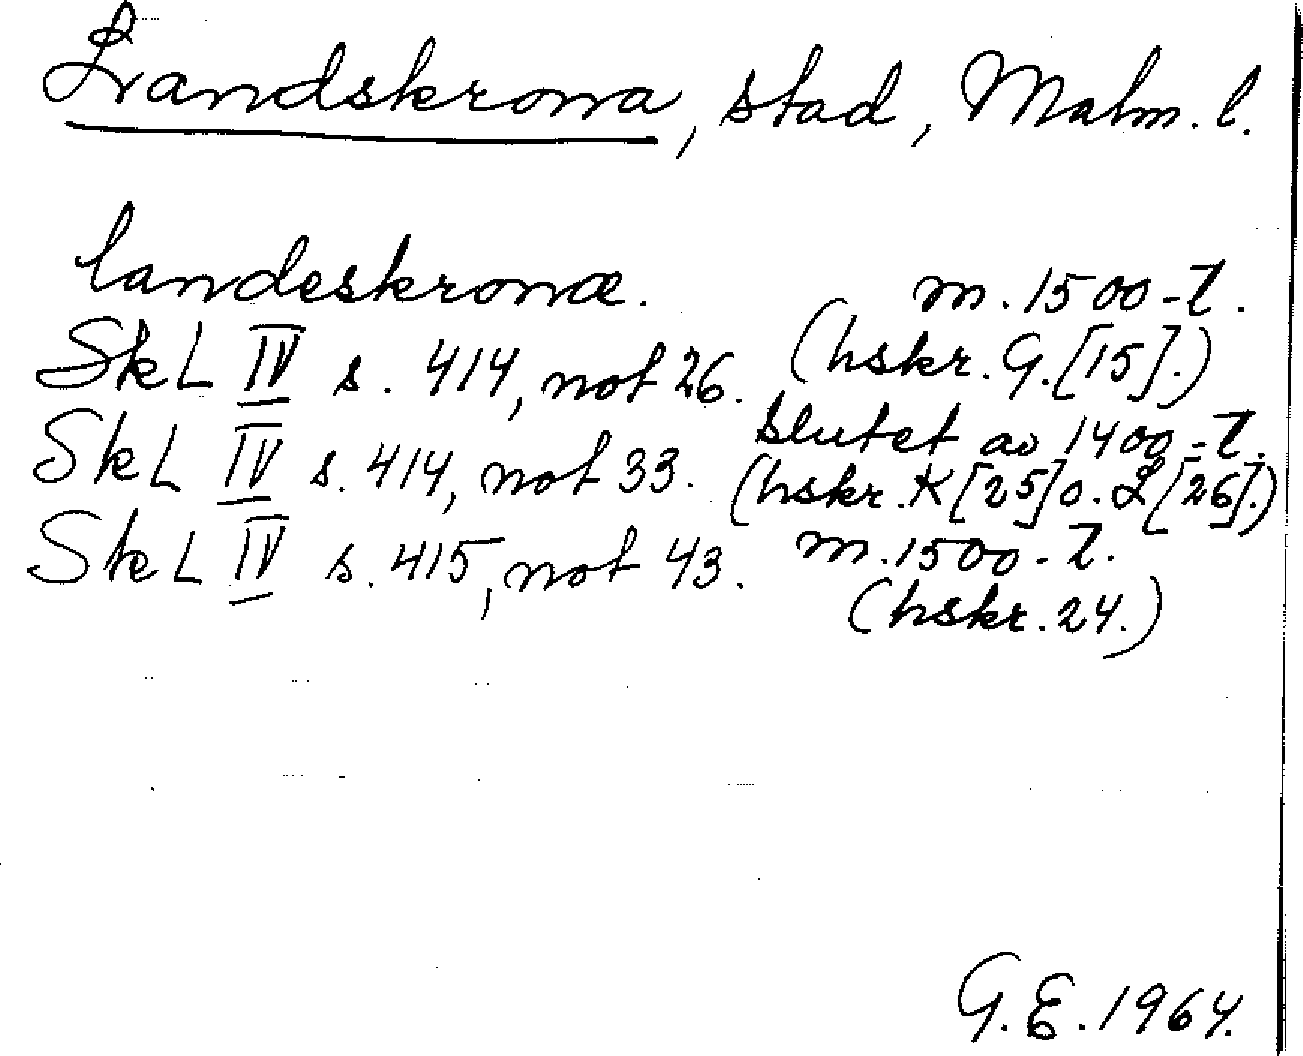 Landskrona, stad, Malm. l.
landeskronæ. m. 1500-t.
SkL IV s. 414, not 26. (hskr. G. [15].)
SkL IV s. 414, not 33. slutet av 1400-t.
(hskr. K [25] o. L [26].)
SkL IV s. 415, not 43. m. 1500-t.
(hskr. 24.)
G. E. 1964.